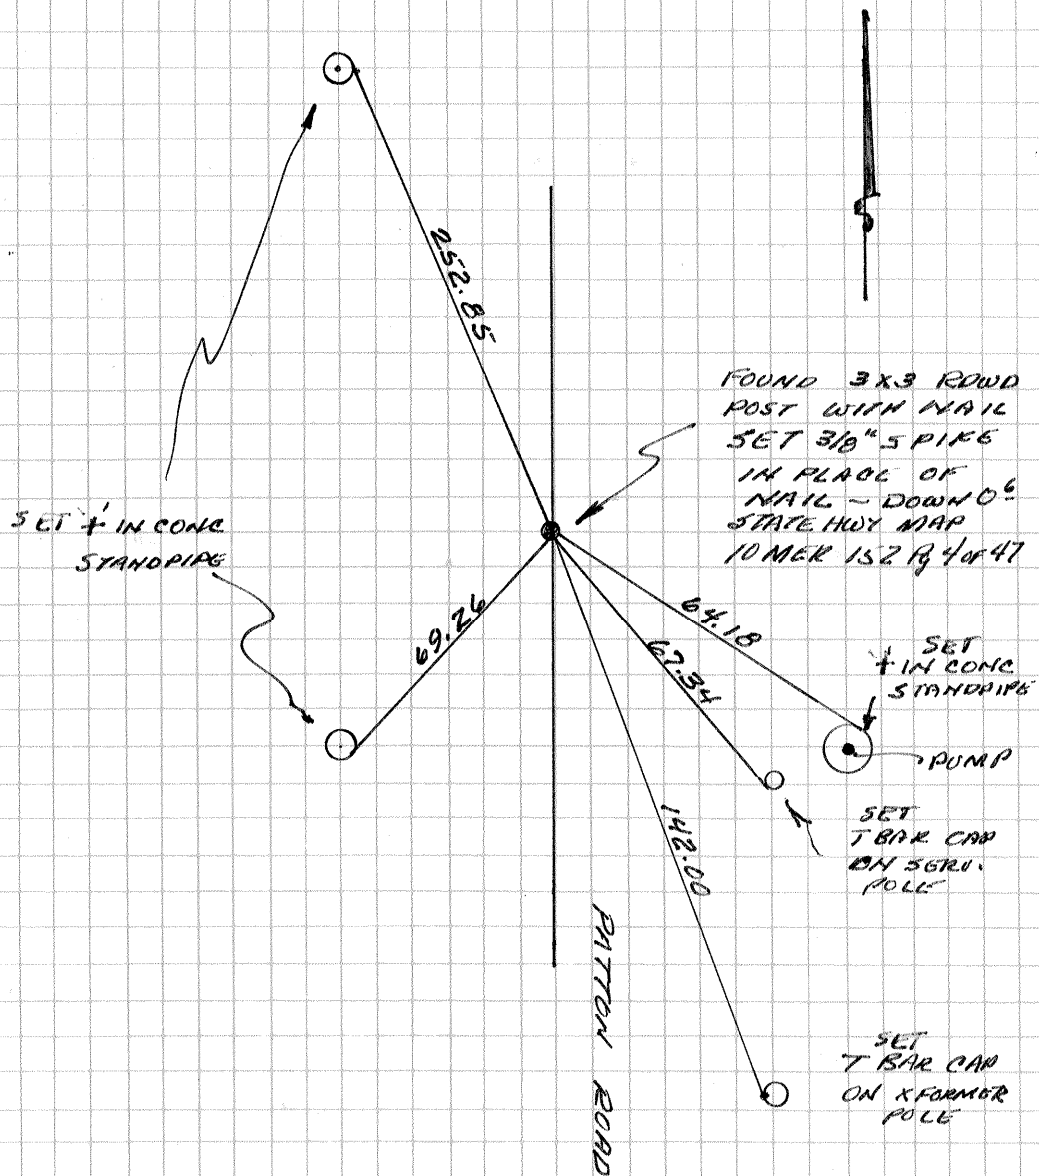 252.85
FOUND 3X3 RDWD
POST WITH NAIL
SET 3/8" SPIKE
IN PLACE OF
NAIL - DOWN 0⁶
STATE HWY MAP
10 MER 152 Pg 4 of 47
SET + IN CONC
STANDPIPE
69.26
64.18
67.34
SET
+ IN CONC
STANDPIPE
PUMP
SET
T BAR CAP
ON SERV.
POLE
142.00
PATTON ROAD
SET
T BAR CAP
ON XFORMER
POLE